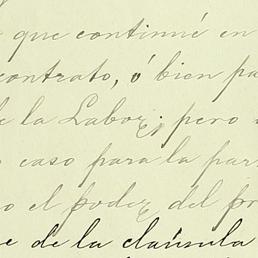 que continué en
contrato, ó bien pa
de la Labor; pero
caso para la par
o el poder del pr
e de la claúsula